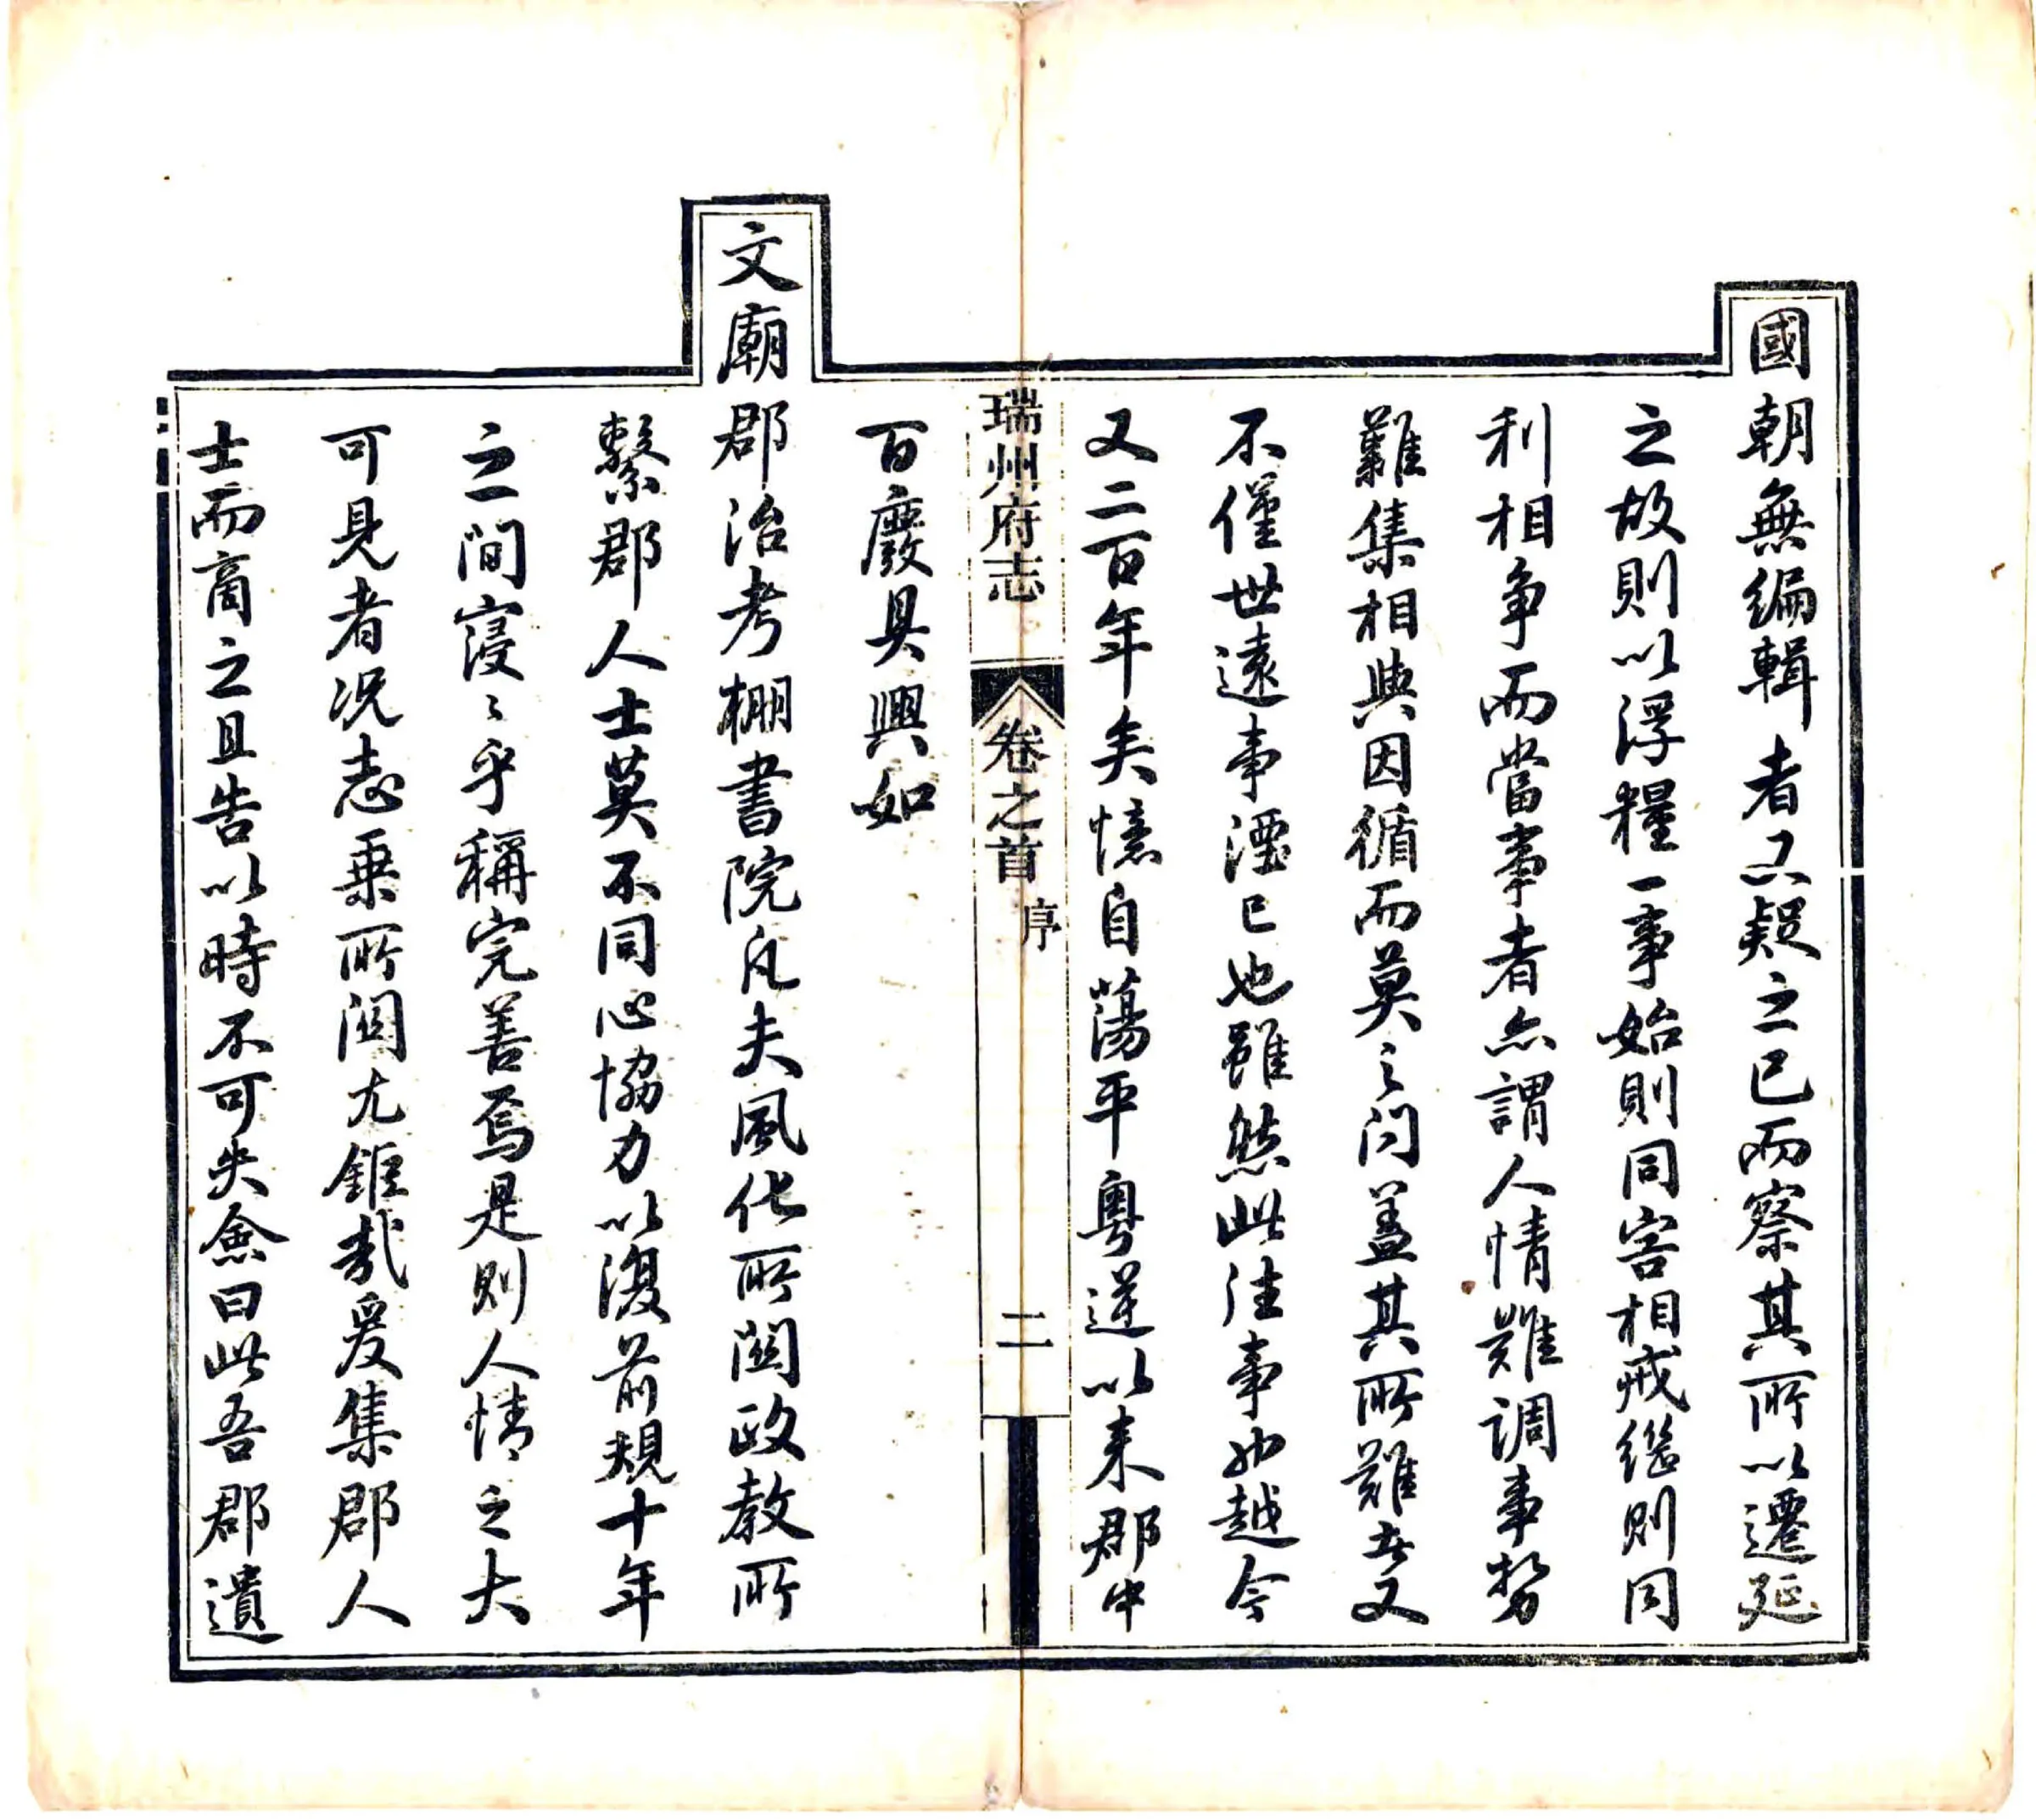 國朝無編輯者又疑之已而察其所以遷延
之故則以浮糧一事始則同害相戒繼則同
利相争而當事者亦謂人情難調事勢
難集相與因循而莫之問蓋其所難者又
不僅世遠事湮已也雖然此往事也越今
又二百年矣憶自蕩平粵逆以来郡中
瑞州府志
卷之首
序
二
百廢具興如
文廟郡治考棚書院凡夫風化所關政教所
繫郡人士莫不同心協力以復前規十年
之間寖〻乎稱完善焉是則人情之大
可見者况志乗所關尤鉅哉爰集郡人
士而商之且告以時不可失僉曰此吾郡遺